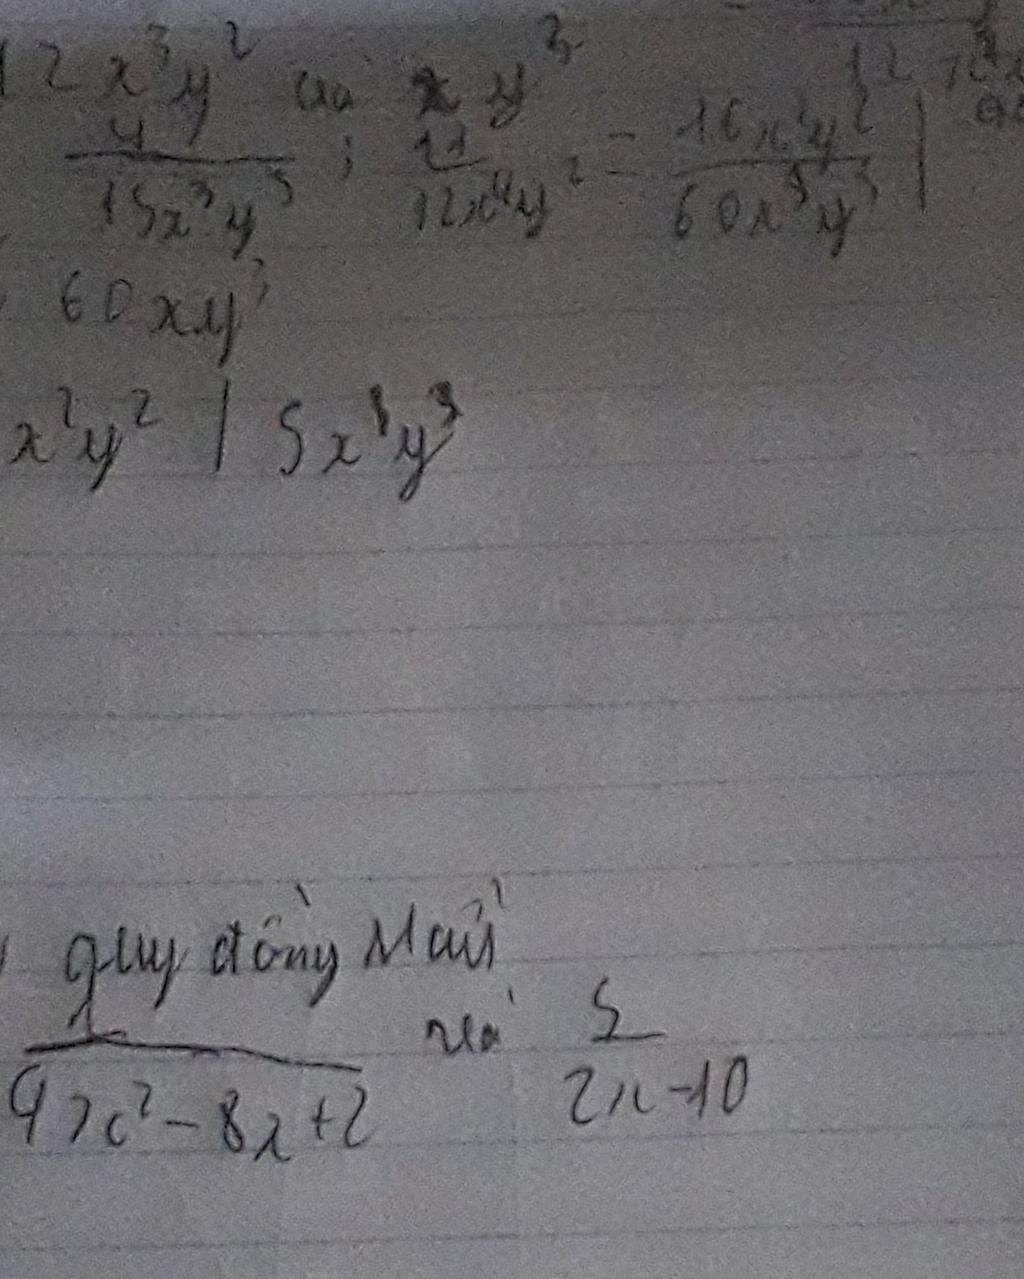 12x³y² và xy³
4/15x³y³ ; 11/12x⁴y² = 16x²y²/60x⁵y³ |
60xy³
x²y² | 5x³y³
quy đồng Mẫu
1/4x²-8x+2 và 5/2x-10